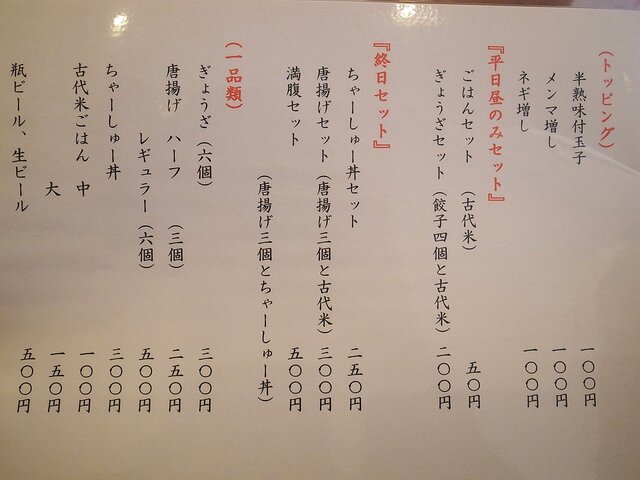 （トッピング）
半熟味付玉子 一〇〇円
メンマ増し 一〇〇円
ネギ増し 一〇〇円
『平日昼のみセット』
ごはんセット （古代米） 五〇円
ぎょうざセット （餃子四個と古代米） 二〇〇円
『終日セット』
ちゃーしゅー丼セット 二五〇円
唐揚げセット （唐揚げ三個と古代米） 三〇〇円
満腹セット 五〇〇円
（唐揚げ三個とちゃーしゅー丼）
（一品類）
ぎょうざ （六個） 三〇〇円
唐揚げ ハーフ （三個） 二五〇円
レギュラー （六個） 五〇〇円
ちゃーしゅー丼 三〇〇円
古代米ごはん 中 一〇〇円
大 一五〇円
瓶ビール、生ビール 五〇〇円